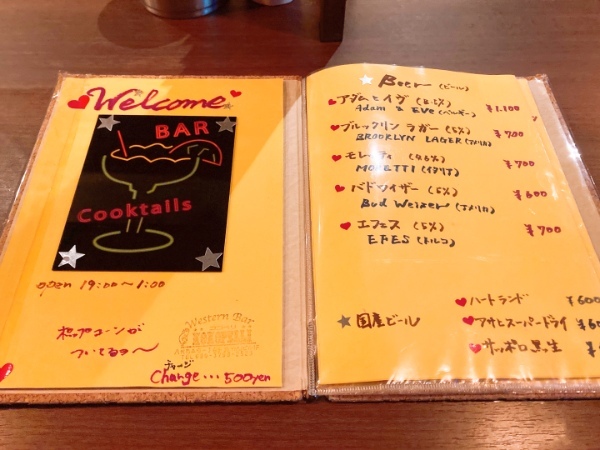 Welcome
BAR
Cooktalls
open 19:00~1:00
ポップコーンが
ついてるヨ~
Western Bar
チャージ
Charge... 500yen
Beer (ビール)
アダムとイヴ (8.5%) ¥1.100
Adam & Eve (ベルギー)
ブルックリン ラガー (5%) ¥700
BROOKLYN LAGER (アメリカ)
モレッティ (4.6%) ¥700
MORETTI (イタリア)
バドワイザー (5%) ¥600
Bud Weiser (アメリカ)
エフェス (5%) ¥700
EFES (トルコ)
国産ビール
ハートランド ¥600
アサヒスーパードライ ¥60
サッポロ黒生 ¥